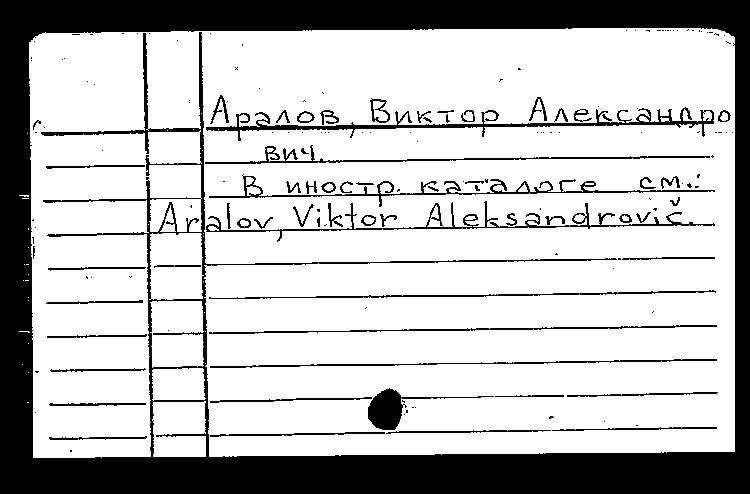 Аралов, Виктор Александро
вич.
В иностр. каталоге см.:
Aralov, Viktor Aleksandrovič.